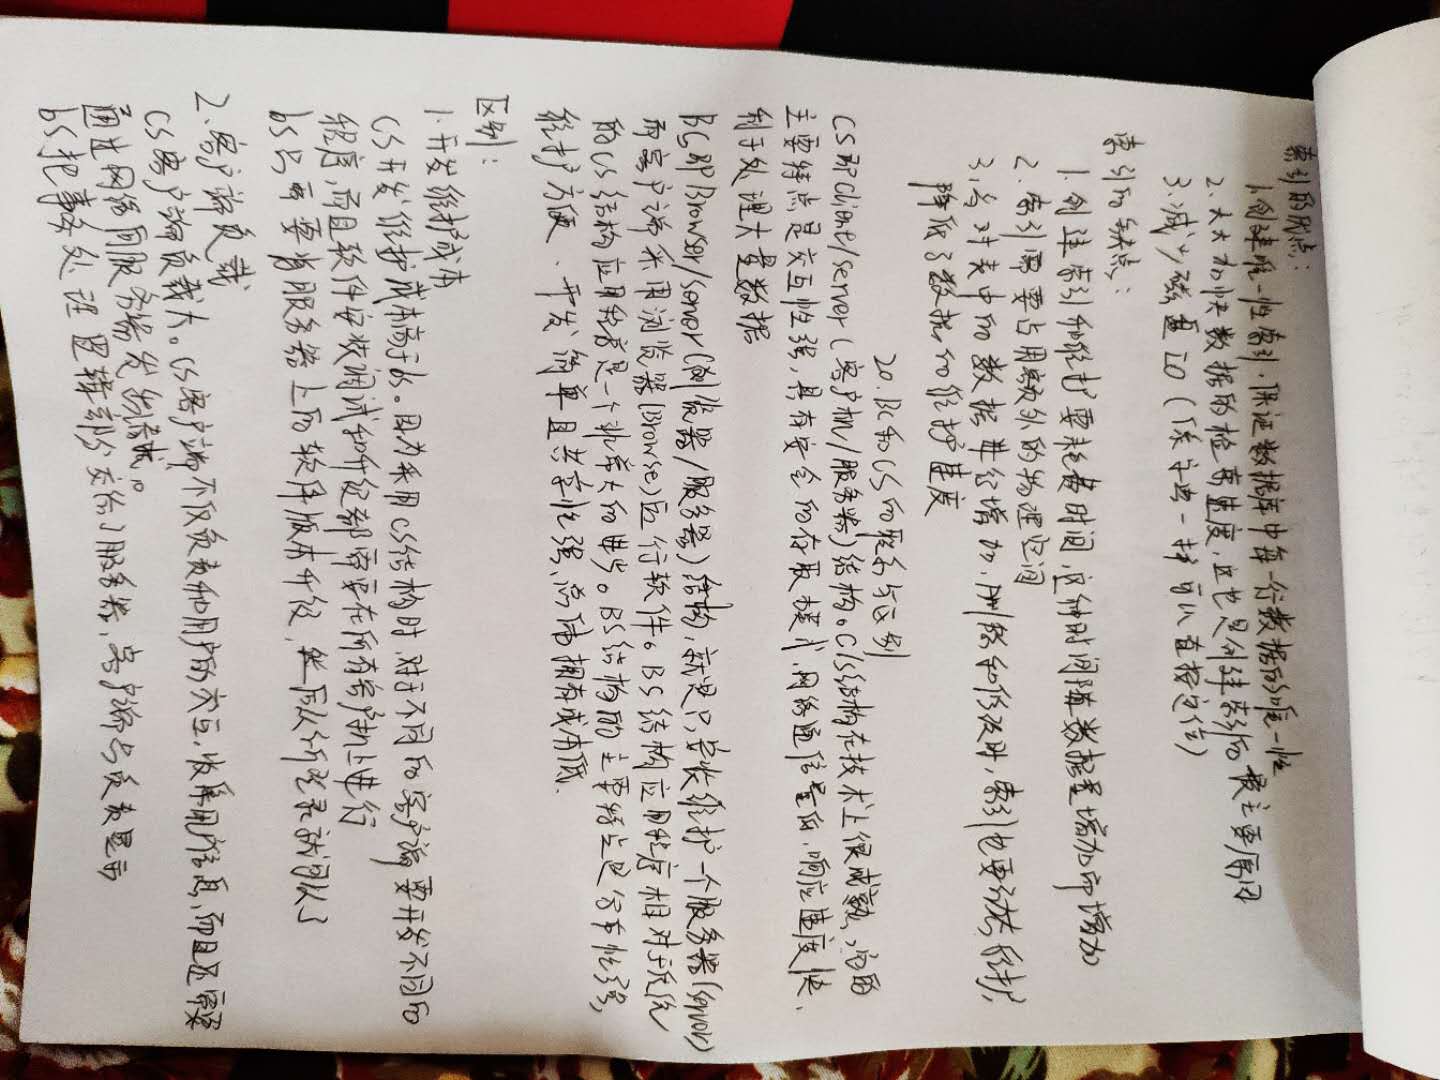 索引的优点：
1.创建唯一性索引.保证数据库中每一行数据的唯一性
2.大大加快数据的检索速度,这也是创建索引的最主要原因
3.减少磁盘IO(像字典一样可以直接定位)
索引的缺点：
1.创建索引和维护要耗费时间,这种时间随数据量增加而增加
2.索引需要占用额外的物理空间
3.当对表中的数据进行增加.删除和修改时,索引也要动态维护,
降低了数据的维护速度
20.BC和CS的联系与区别
CS即Client/server(客户机/服务器)结构。C/S结构在技术上很成熟,它的
主要特点是交互性强,具有安全的存取模式,网络通信量低.响应速度快.
利于处理大量数据
BS即Browser/server(浏览器/服务器)结构,就是只安装维护一个服务器(server)
而客户端采用浏览器(Browse)运行软件。BS结构应用程序相对于传统
的CS结构应用程序是一个非常大的进步。BS结构的主要特点是分布性强,
维护方便、开发简单且共享性强、总体拥有成本低.
区别：
1.开发维护成本
CS开发维护成本高于bs。因为采用CS结构时,对于不同的客户端要开发不同的
程序,而且软件安装调试和升级都需要在所有客户机上进行
bs只需要将服务器上的软件版本升级,然后从新登录就可以了
2.客户端负载
CS客户端负载大。CS客户端不仅负责和用户的交互,收集用户信息,而且还需要
通过网络向服务器发出请求。
bs把事务处理逻辑部分交给了服务器,客户端只负责显示